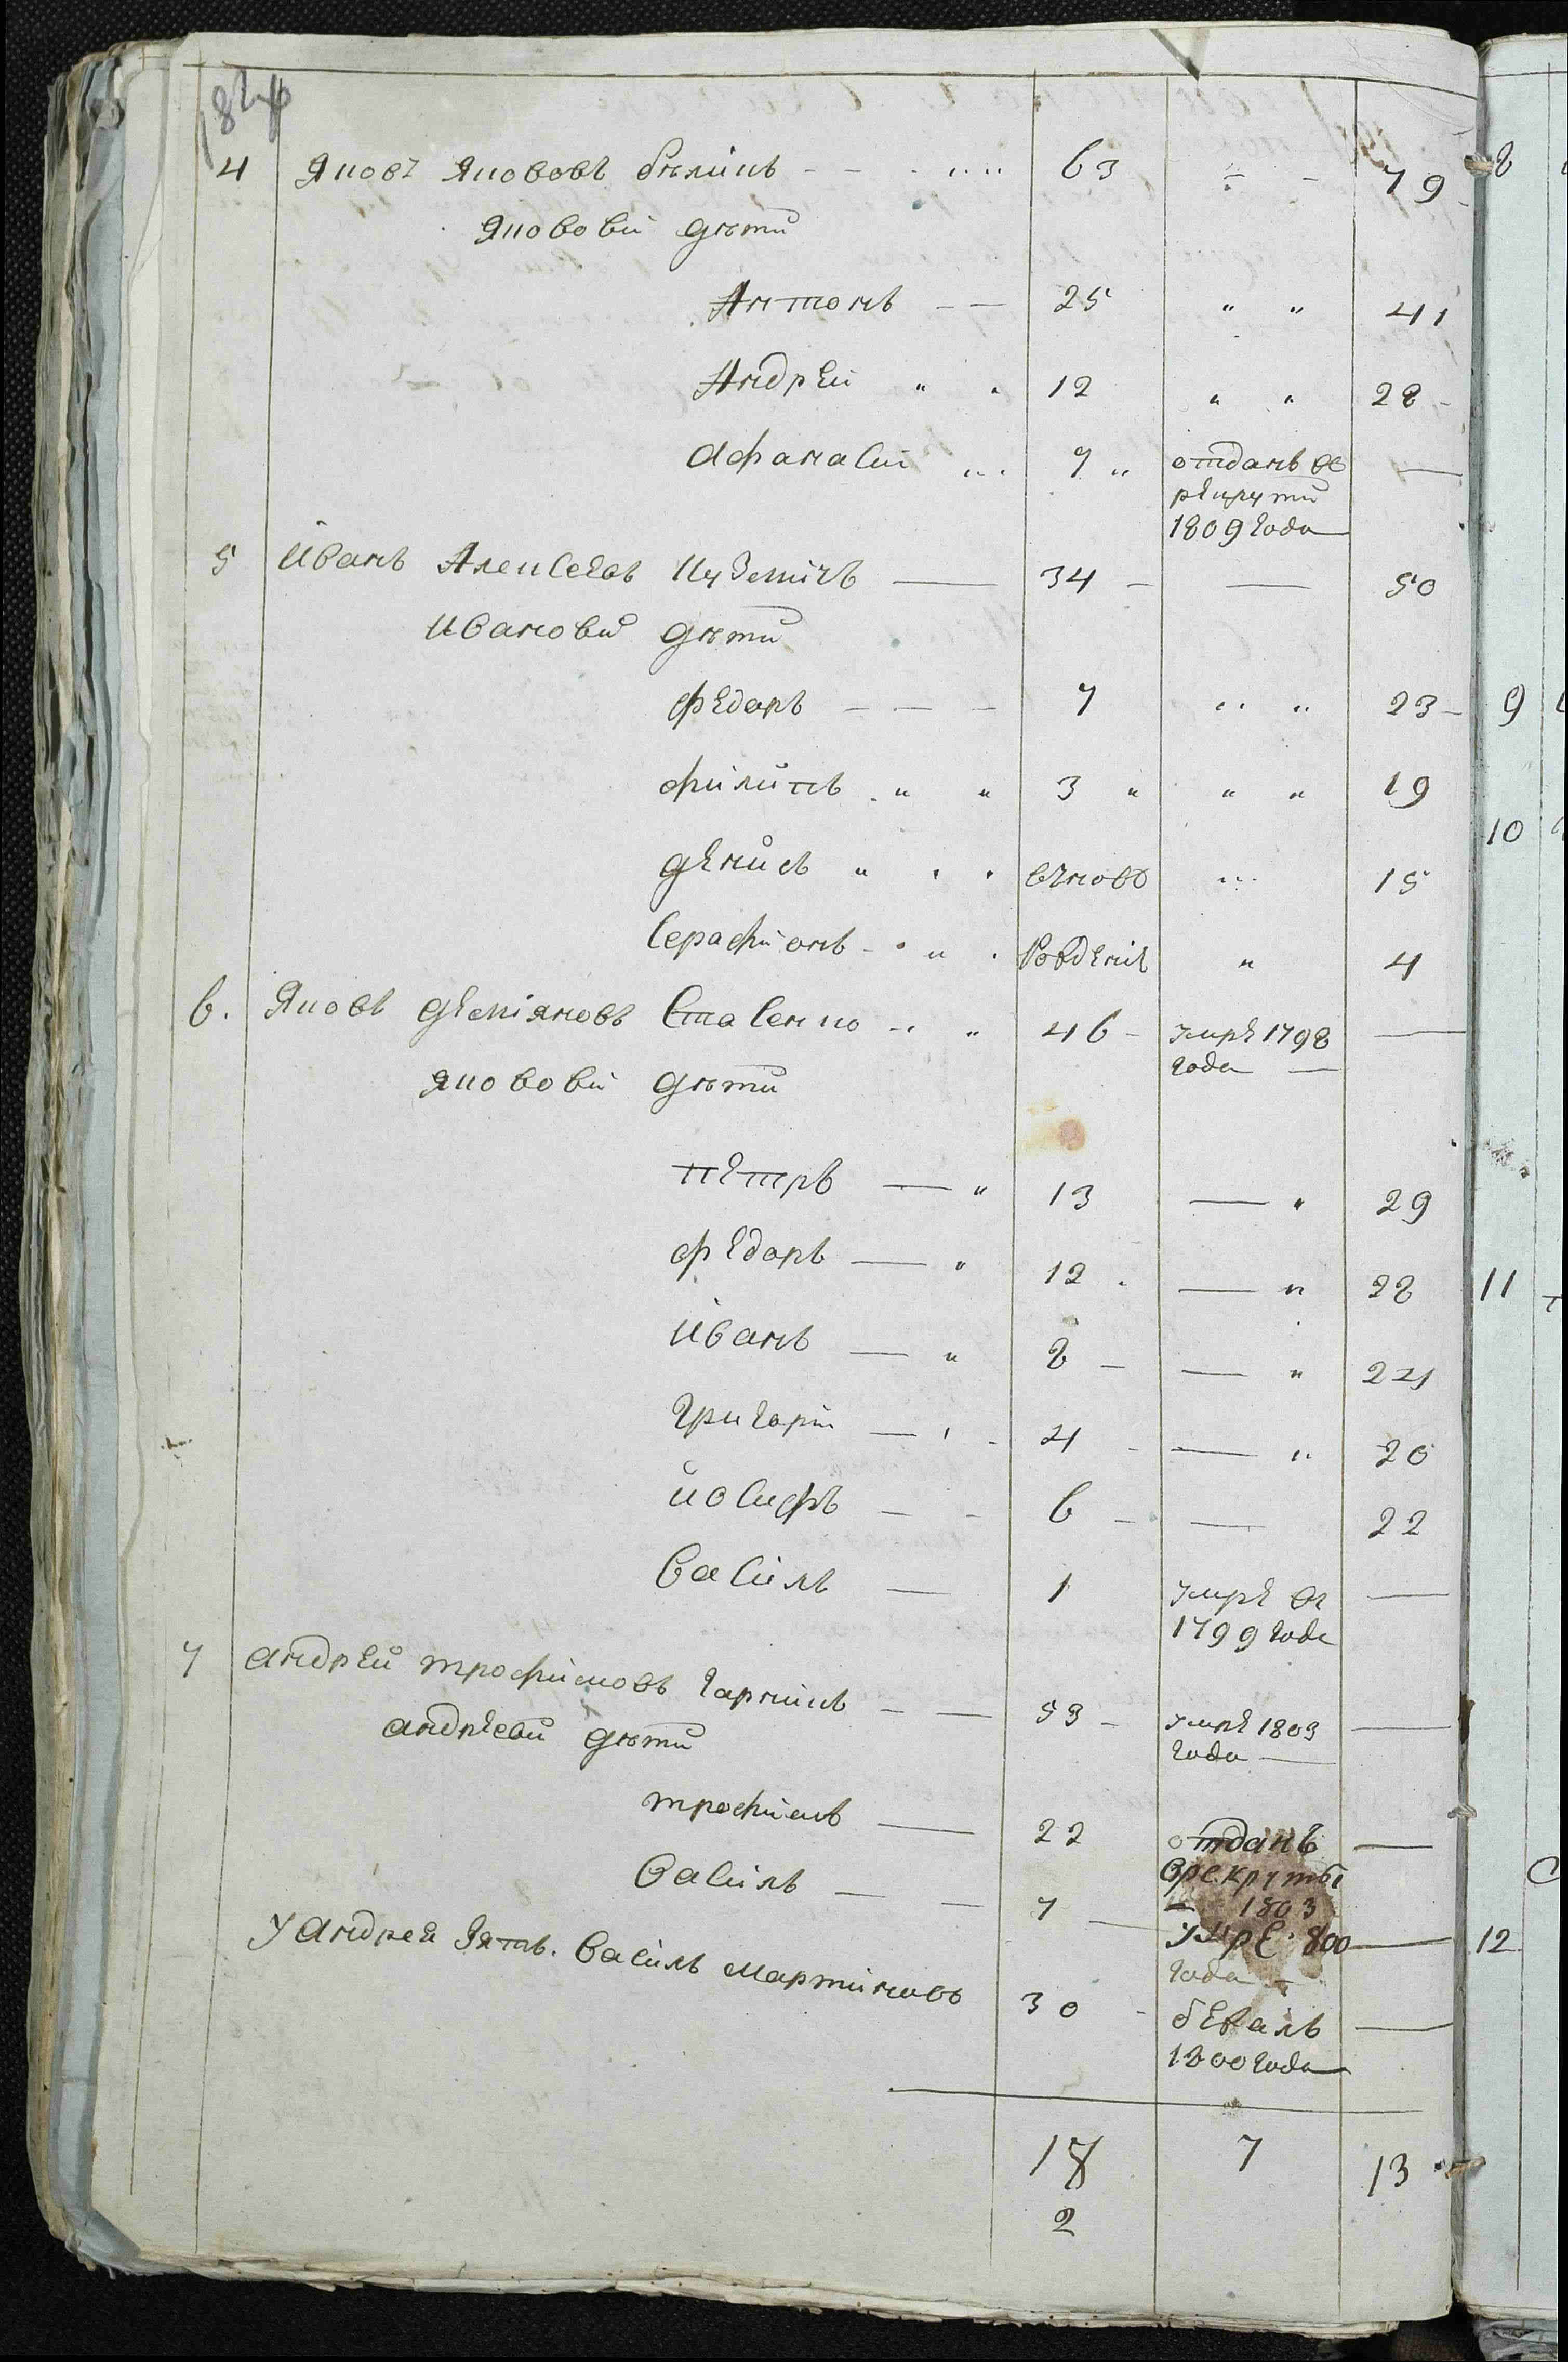 4 Яковъ Якововъ бѣликъ 63 — 79
Яковови дѣти
Антонъ — — 25 " " 41
Андрей " " 12 " " 28
Афанасий 9 " отданъ во —
рекрути
1809 года
5 Иванъ Алексеевъ Куземичъ — 34 — — 50
Иванови дѣти
федоръ — — — 7 " " 23
филипъ " " 3 " " " 19
денисъ " " вновь " 15
Серафионъ " рожденіе " 4
6. Яковъ деміяновъ Стасенко " 46 — умре 1798 —
года —
Якоvови дѣти
петръ — " 13 — " 29
федоръ — " 12 — " 28
Иванъ — " 8 — — " 24
григорій — 4 — — " 20
йосифъ — — 6 — — 22
Василь — 1 умре въ —
1799 года
7 андрей трофимовъ гаркикъ — — 53 — умре 1803 —
года —
андрѣеви дѣти
трофимъ — 22 отданъ —
врекруты
Василь — — 7 — 1803
умре 800 —
У андрея зять Василь мартиновъ 30 года —
бежалъ —
1800 года
18 7 13
2
8
9
10
11
12